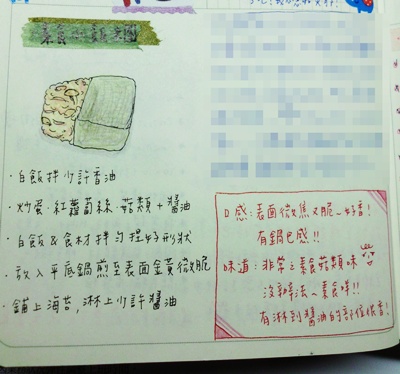 素食
・白飯拌少許香油
・炒蛋.紅蘿蔔絲.菇類+醬油
・白飯&食材拌勻捏好形狀
・放入平底鍋煎至表面金黃微脆
・鋪上海苔,淋上少許醬油
口感:表面微焦又脆~好吃!
有鍋巴感!!
味道:非常之素食菇類味
沒辦法~素食咩!!
有淋到醬油的部位很香!